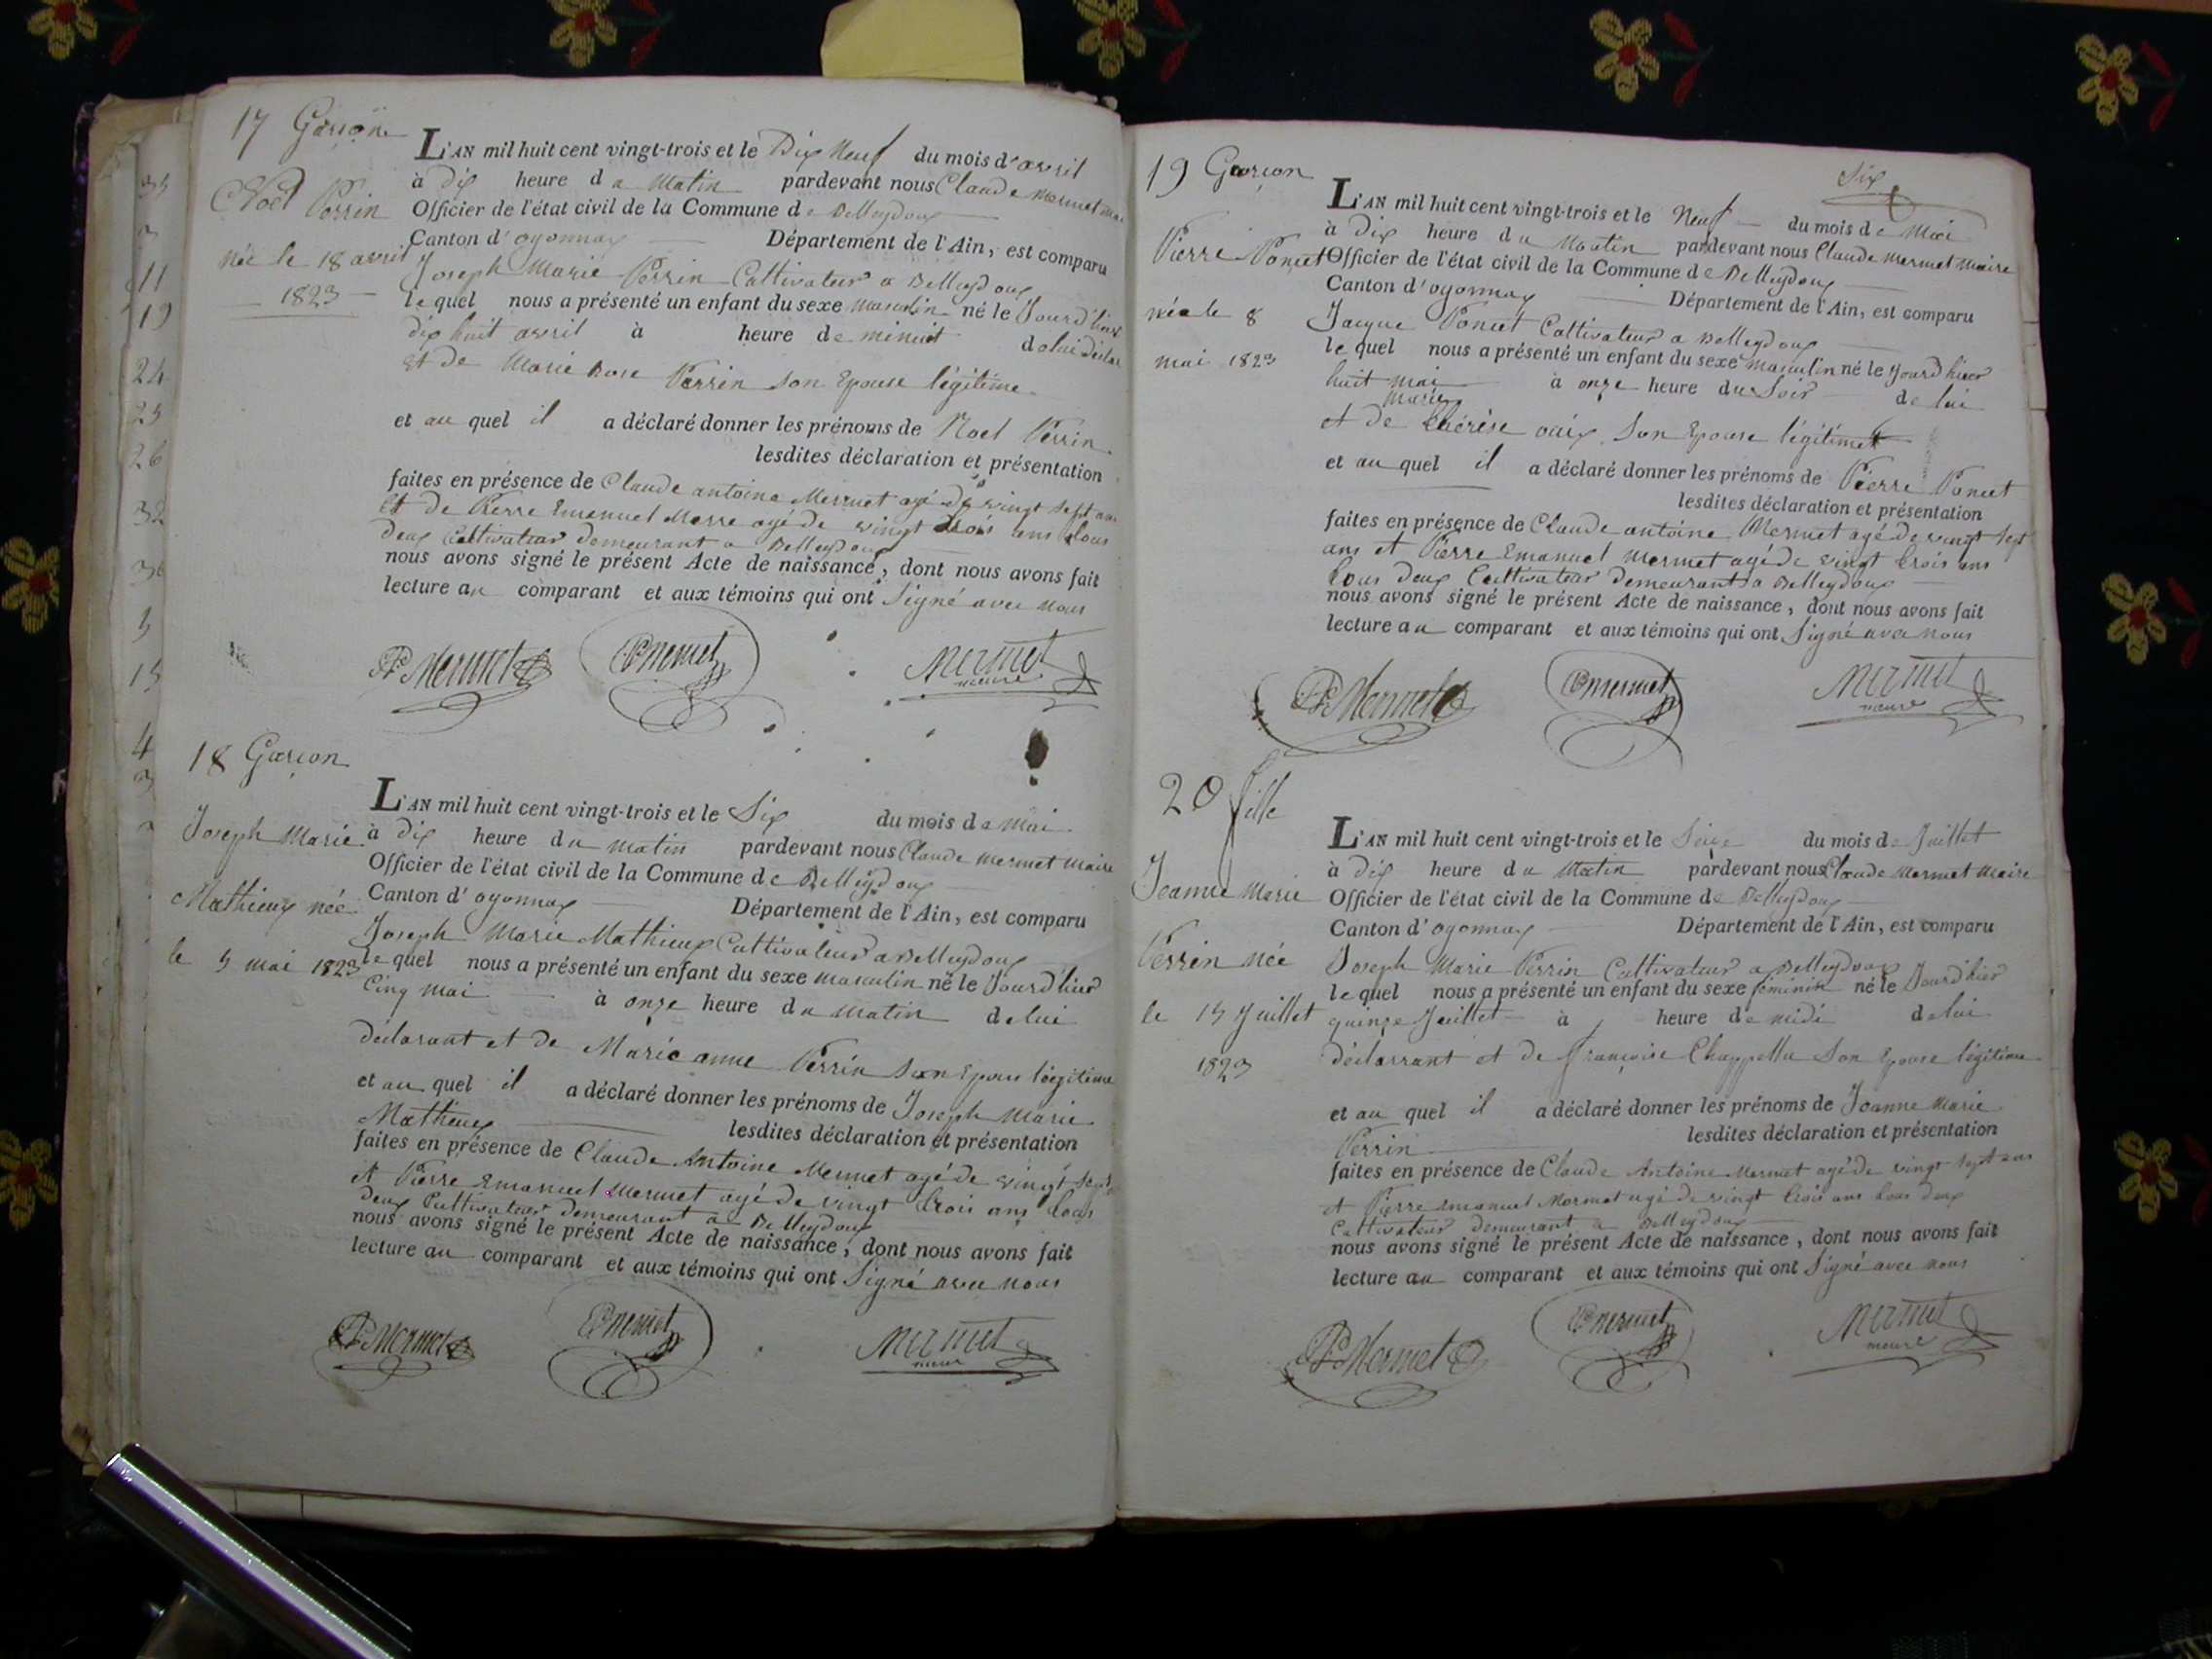 17 Garçon
Noel Perrin
née le 18 avril
1823
L'AN mil huit cent vingt-trois et le Dix Neuf du mois d'avril
à dix heure du Matin pardevant nous Claude Mermet
Officier de l'état civil de la Commune de Belleydoux
Canton d'oyonnax Département de l'Ain, est comparu
Joseph Marie Perrin Cultivateur a Belleydoux
lequel nous a présenté un enfant du sexe masculin né le Jourd'hier
dix huit avril à heure de minuit de lui
et de Marie Rose Perrin son Epouse légitime
et au quel il a déclaré donner les prénoms de Noel Perrin
lesdites déclaration et présentation
faites en présence de Claude antoine Mermet agé de vingt sept ans
et de Pierre Emanuel Merme agé de vingt trois ans tous
deux Cultivateur demeurant a Belleydoux
nous avons signé le présent Acte de naissance, dont nous avons fait
lecture au comparant et aux témoins qui ont Signé avec nous
Mermet Mermet Mermet
maire
18 Garçon
Joseph Marie
Mathieux née
le 5 mai 1823
L'AN mil huit cent vingt-trois et le Six du mois de Mai
à dix heure du matin pardevant nous Claude Mermet Maire
Officier de l'état civil de la Commune de Belleydoux
Canton d'oyonnax Département de l'Ain, est comparu
Joseph Marie Mathieux Cultivateur a Belleydoux
lequel nous a présenté un enfant du sexe masculin né le Jourd'hier
Cinq mai à onze heure du Matin de lui
déclarant et de Marie anne Perrin son Epouse légitime
et au quel il a déclaré donner les prénoms de Joseph Marie
Mathieux lesdites déclaration et présentation
faites en présence de Claude Antoine Mermet agé de vingt sept
et Pierre Emanuel Mermet agé de vingt trois ans tous
deux Cultivateur demeurant a Belleydoux
nous avons signé le présent Acte de naissance, dont nous avons fait
lecture au comparant et aux témoins qui ont Signé avec nous
Mermet Mermet Mermet
maire
Six
19 Garçon
Pierre Poncet
née le 8
mai 1823
L'AN mil huit cent vingt-trois et le Neuf du mois de Mai
à Dix heure du Matin pardevant nous Claude Mermet Maire
Officier de l'état civil de la Commune de Belleydoux
Canton d'oyonnax Département de l'Ain, est comparu
Jacque Poncet Cultivateur a Belleydoux
lequel nous a présenté un enfant du sexe masculin né le Jourd'hier
huit mai à onze heure du Soir de lui
Marie
et de thérèse vaix Son Epouse légitime
et au quel il a déclaré donner les prénoms de Pierre Poncet
lesdites déclaration et présentation
faites en présence de Claude antoine Mermet agé de vingt sept
ans et Pierre Emanuel Mermet agé de vingt trois ans
tous deux Cultivateur demeurant a Belleydoux
nous avons signé le présent Acte de naissance, dont nous avons fait
lecture au comparant et aux témoins qui ont Signé avec nous
Mermet Mermet Mermet
maire
20 fille
Jeanne Marie
Perrin née
le 15 Juillet
1823
L'AN mil huit cent vingt-trois et le Seize du mois de Juillet
à dix heure du Matin pardevant nous Claude Mermet Maire
Officier de l'état civil de la Commune de Belleydoux
Canton d'oyonnax Département de l'Ain, est comparu
Joseph Marie Perrin Cultivateur a Belleydoux
lequel nous a présenté un enfant du sexe feminin né le Jourd'hier
quinze Juillet à heure de midi de lui
déclarrant et de françoise Chappellu Son Epouse légitime
et au quel il a déclaré donner les prénoms de Jeanne Marie
Perrin lesdites déclaration et présentation
faites en présence de Claude Antoine Mermet agé de vingt sept ans
et Pierre emanuel Mermet agé de vingt trois ans tous deux
Cultivateur demeurant a Belleydoux
nous avons signé le présent Acte de naissance, dont nous avons fait
lecture au comparant et aux témoins qui ont Signé avec nous
Mermet Mermet Mermet
maire